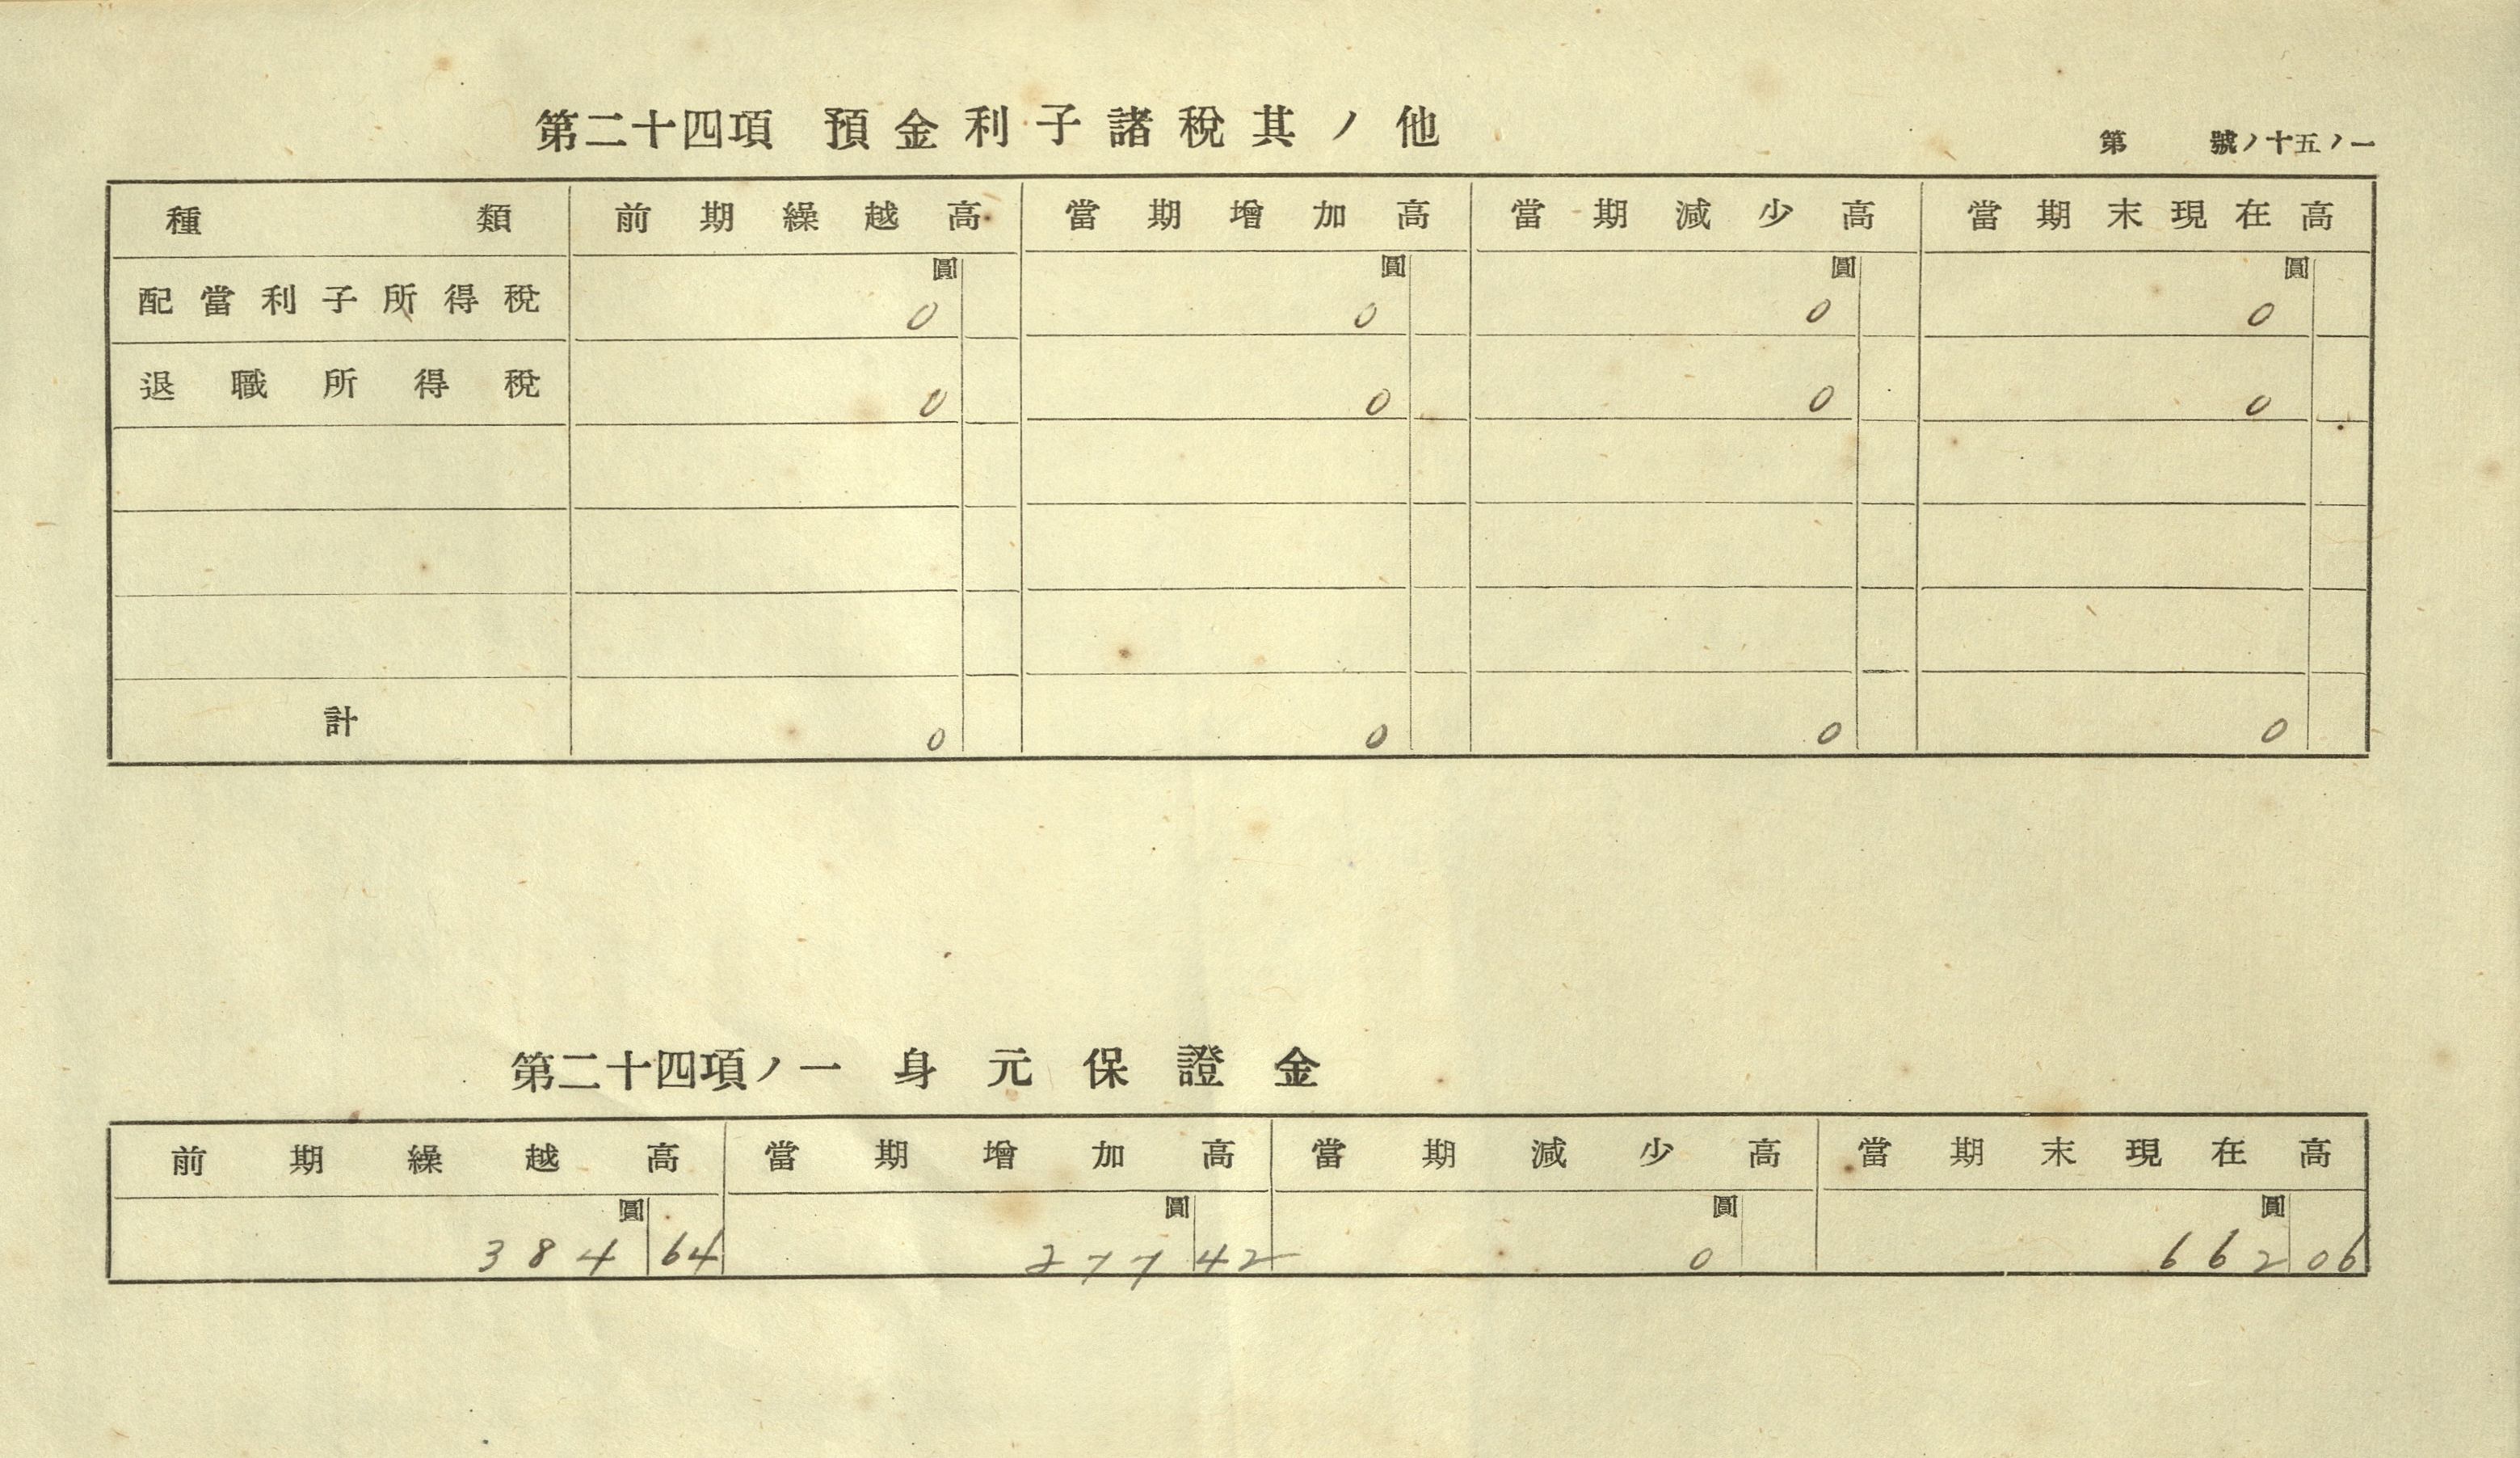 第二十四項 預金利子諸稅其ノ他
第 號ノ十五ノ一
種類 前期繰越高 當期增加高 當期減少高 當期末現在高
圓 圓 圓 圓
配當利子所得稅 0 0 0 0
退職所得稅 0 0 0 0
計 0 0 0 0
第二十四項ノ一 身元保證金
前期繰越高 當期增加高 當期減少高 當期末現在高
圓 圓 圓 圓
384 64 277 42 0 662 06